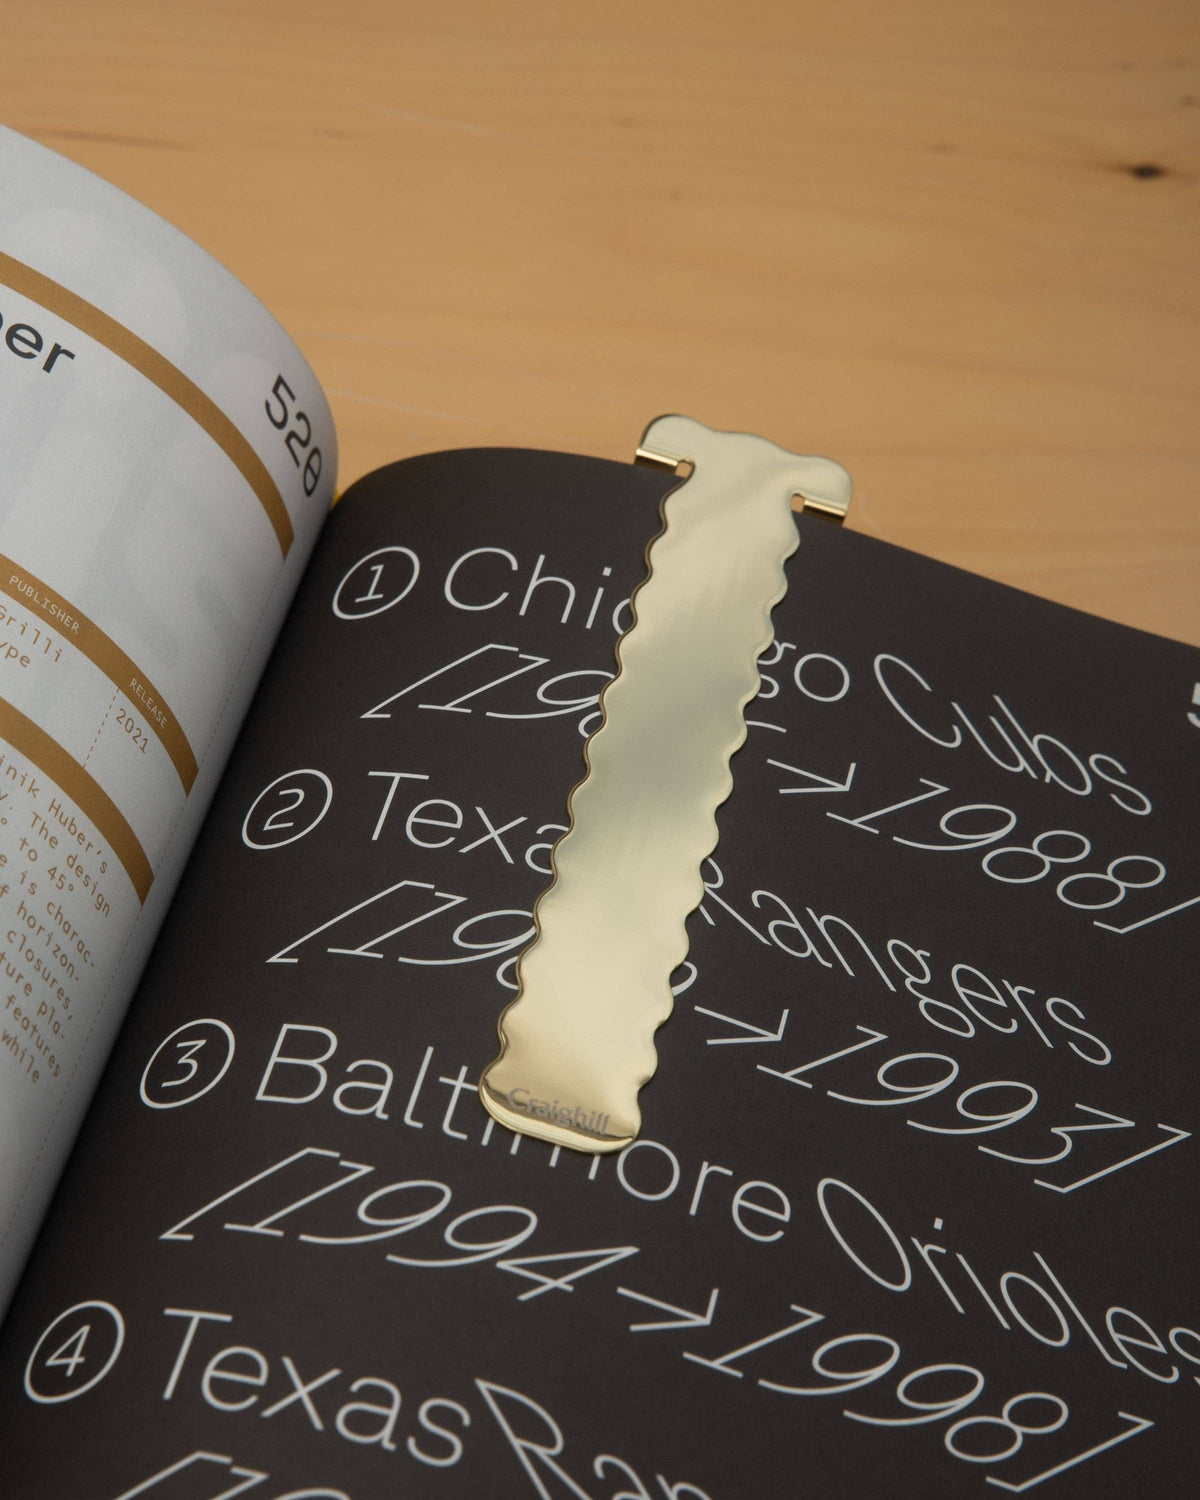 520
PUBLISHER
Grilli
RELEASE
2021
Huber's
The design
to 45°
is charac-
horizon-
closures,
features
while
1 Chi go Cubs
[19 → 1988]
2 Texa Rangers
[19 → 1993]
3 Baltimore Orioles
[1994 → 1998]
4 Texas Ran
Craighill